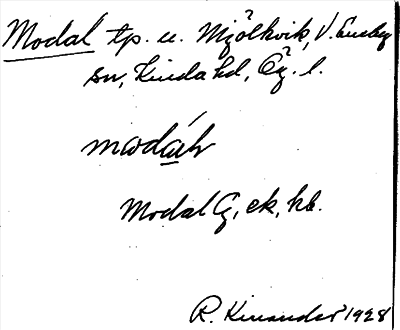 Modal tp. u. Mjölkvik, V. Eneby
sn, Kinda hd, Ög. l.
modal
Modal G, ek, hb.
R. Kinander 1928